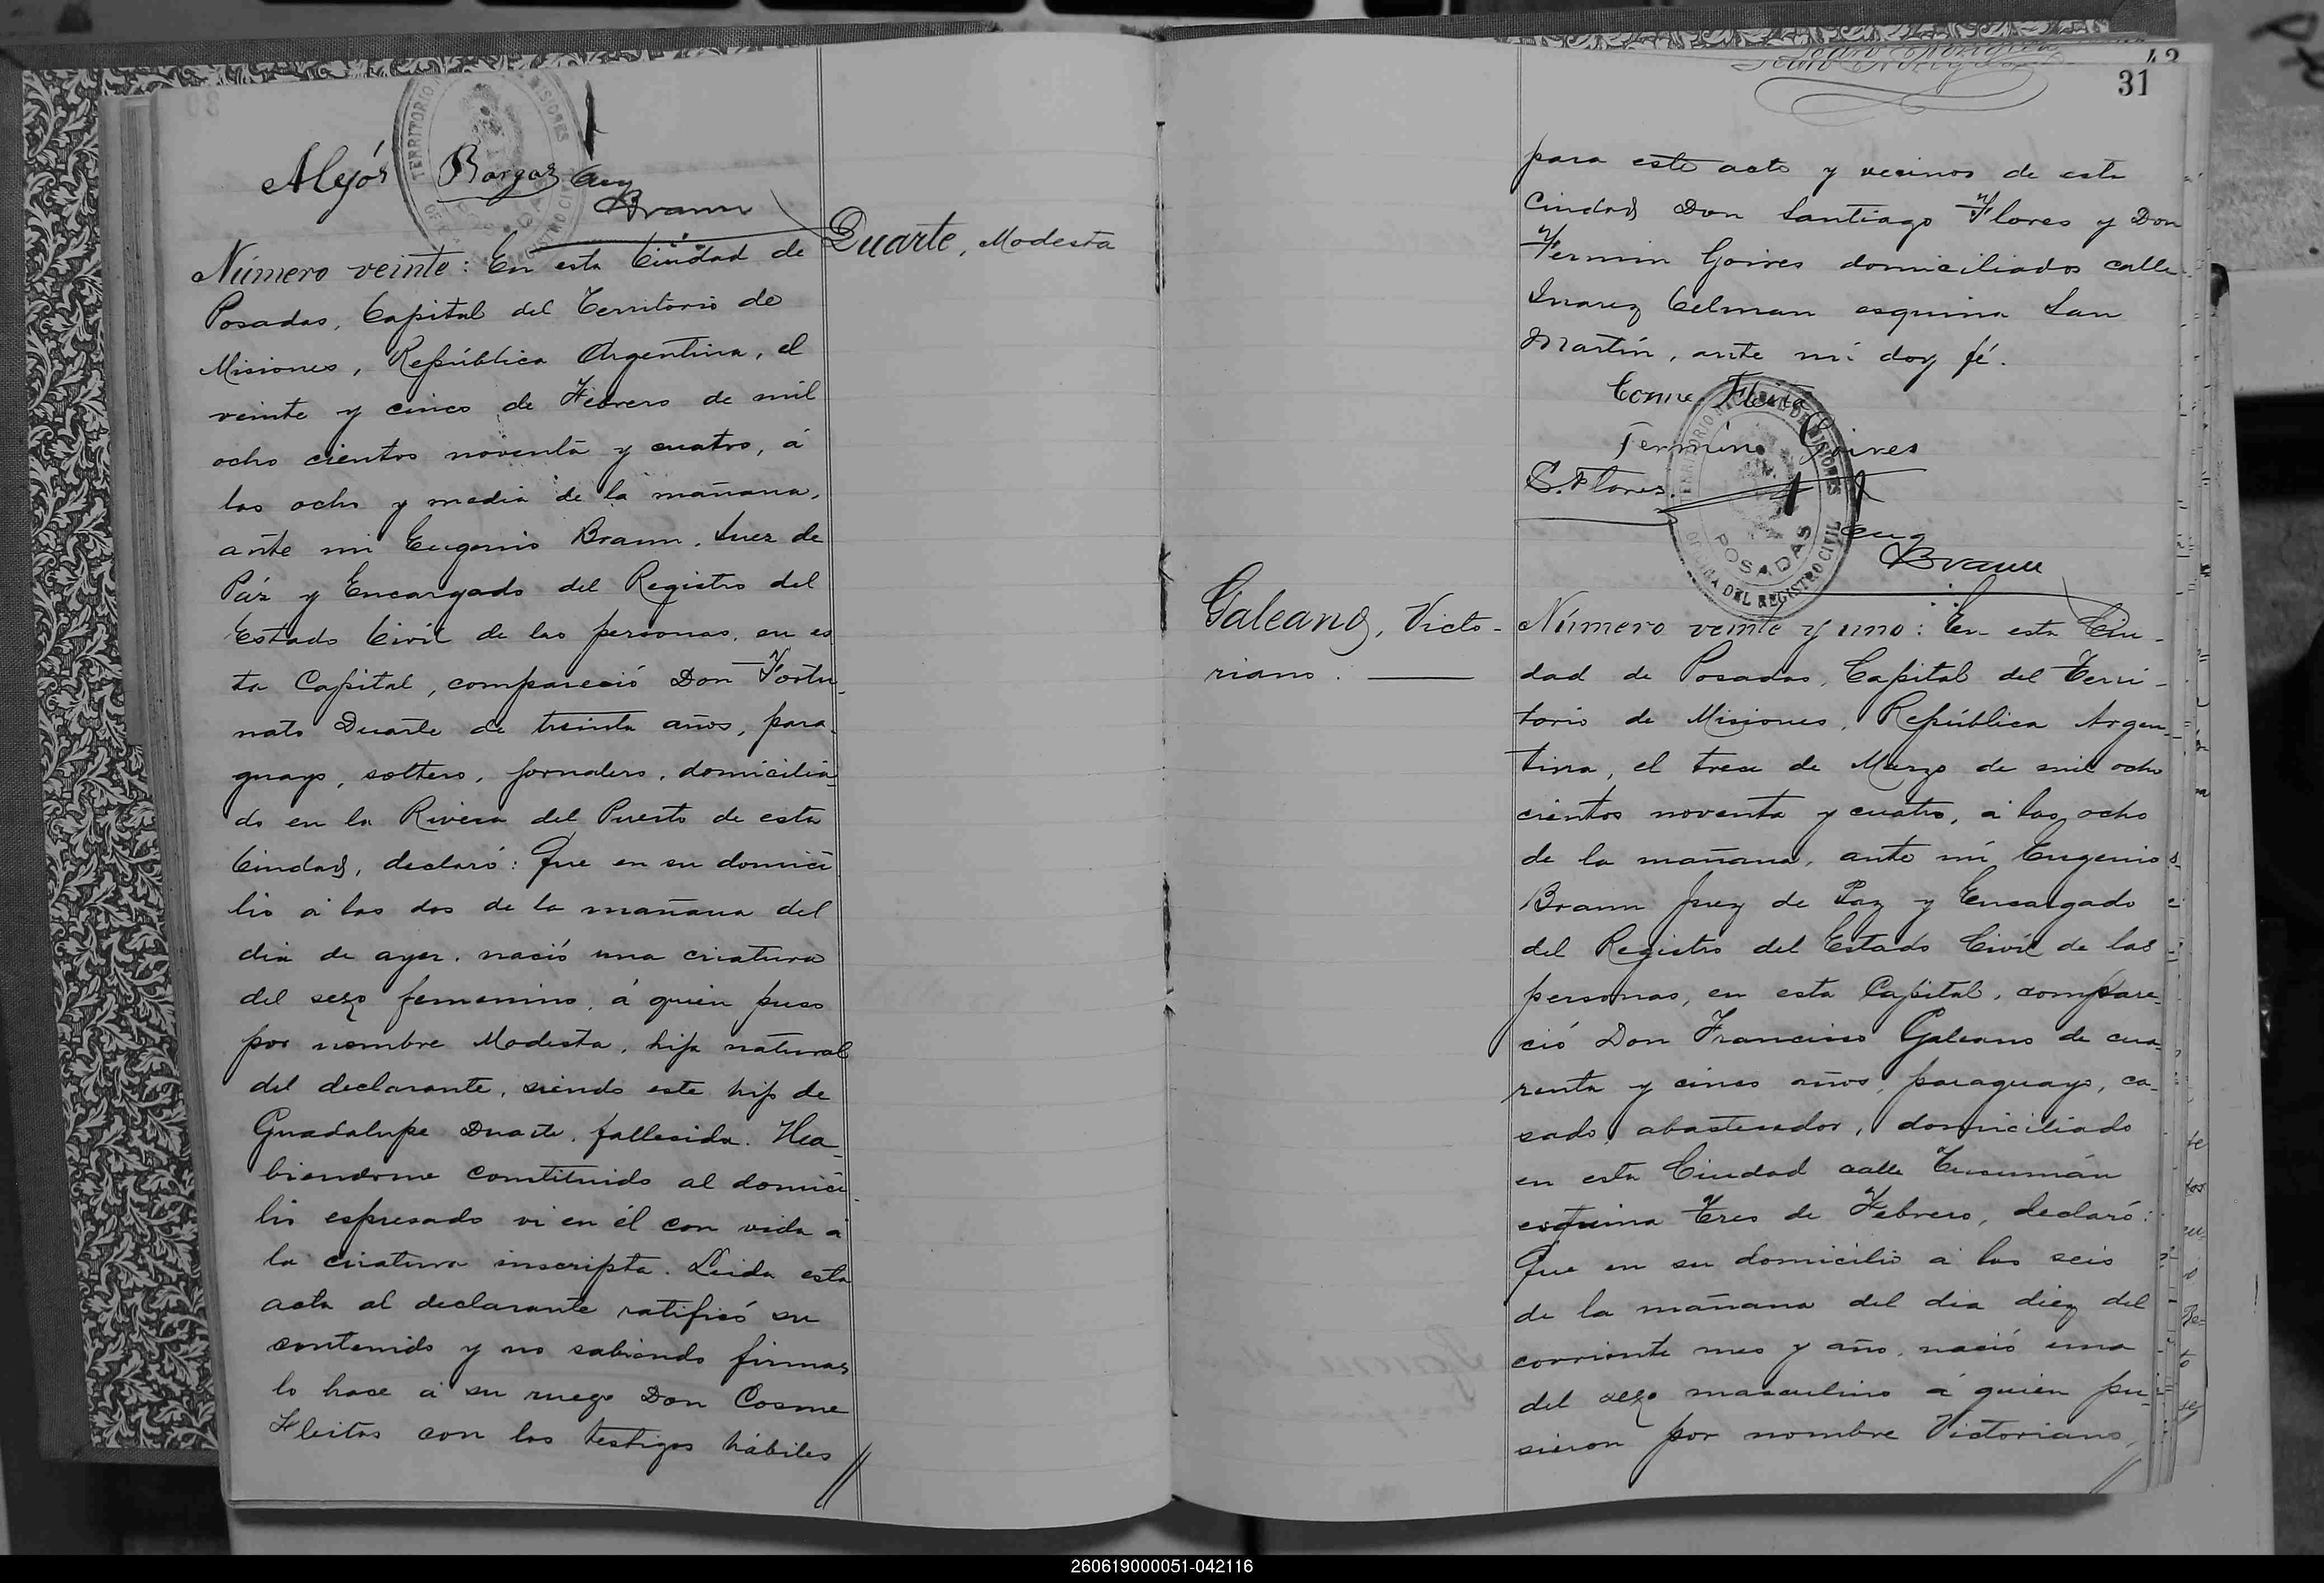 Alejos Bargas Eug
Braun
Duarte, Modesta
Número veinte: En esta Ciudad de
Posadas, Capital del Territorio de
Misiones, República Argentina, el
veinte y cinco de Febrero de mil
ocho cientos noventa y cuatro, á
las ocho y media de la mañana,
ante mi Eugenio Braun, Juez de
Páz y Encargado del Registro del
Estado Civil de las personas, en es
ta Capital, compareció Don Fortu-
nato Duarte de treinta años, para-
guayo, soltero, jornalero, domicilia-
do en la Rivera del Puerto de esta
Ciudad, declaró: Que en su domici
lio á las dos de la mañana del
dia de ayer, nació una criatura
del sexo femenino, á quien puso
por nombre Modesta, hija natural
del declarante, siendo este hijo de
Guadalupe Duarte, fallecida. Ha-
biendome constituido al domici-
lio espresado vi en él con vida á
la criatura inscripta. Leida esta
acta al declarante ratificó su
contenido y no sabiendo firmar
lo hace á su ruego Don Cosme
Fleitas con los testigos hábiles
31
para este acto y vecinos de esta
Ciudad Don Santiago Flores y Don
Fermin Goires domiciliados calle
Juarez Celman esquina San
Martín, ante mi doy fé.
Cosme Fleitas
Fermín Goires
S. Flores.
TERRITORIO NACIONAL DE MISIONES
POSADAS
OFICINA DEL REGISTRO CIVIL
Eug
Braun
Galeano, Victo-
riano.
Número veinte y uno: En esta Ciu-
dad de Posadas, Capital del Terri-
torio de Misiones, República Argen-
tina, el trece de Marzo de mil ocho
cientos noventa y cuatro, á las ocho
de la mañana, ante mí Eugenio
Braun Juez de Paz y Encargado
del Registro del Estado Civil de las
personas, en esta Capital, compare-
ció Don Francisco Galeano de cua-
renta y cinco años, paraguayo, ca-
sado, abastecedor, domiciliado
en esta Ciudad calle Tucumán
esquina Tres de Febrero, declaró:
Que en su domicilio á las seis
de la mañana del dia diez del
corriente mes y año, nació una
del sexo masculino á quien pu-
sieron por nombre Victoriano,
260619000051-042116